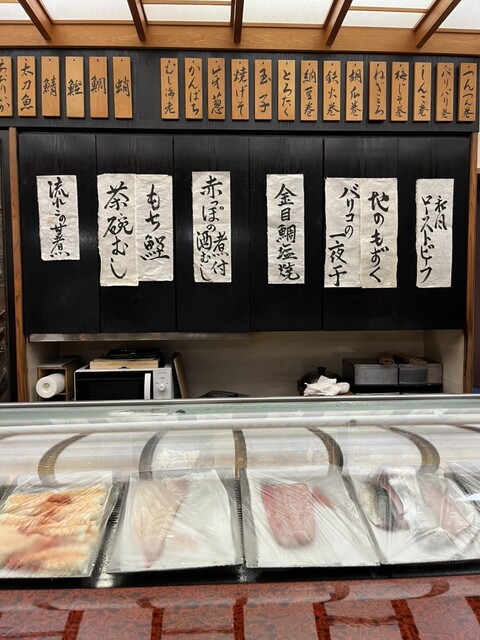 つんつん巻
バリバリ巻
しんこ巻
梅じそ巻
ねぎとろ
胡瓜巻
鉄火巻
納豆巻
とろたく
玉子
焼げそ
芽葱
かんぱち
むし海老
蛸
鯛
鰹
鯖
太刀魚
ローストビーフ
地のもずく
バリコの一夜干
金目鯛塩焼
赤っぽの煮付
酒むし
もち鰹
茶碗むし
流れこの甘煮